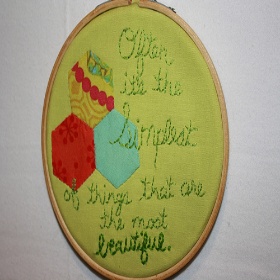 Often
it's the
simplest
of things that are
the most
beautiful.